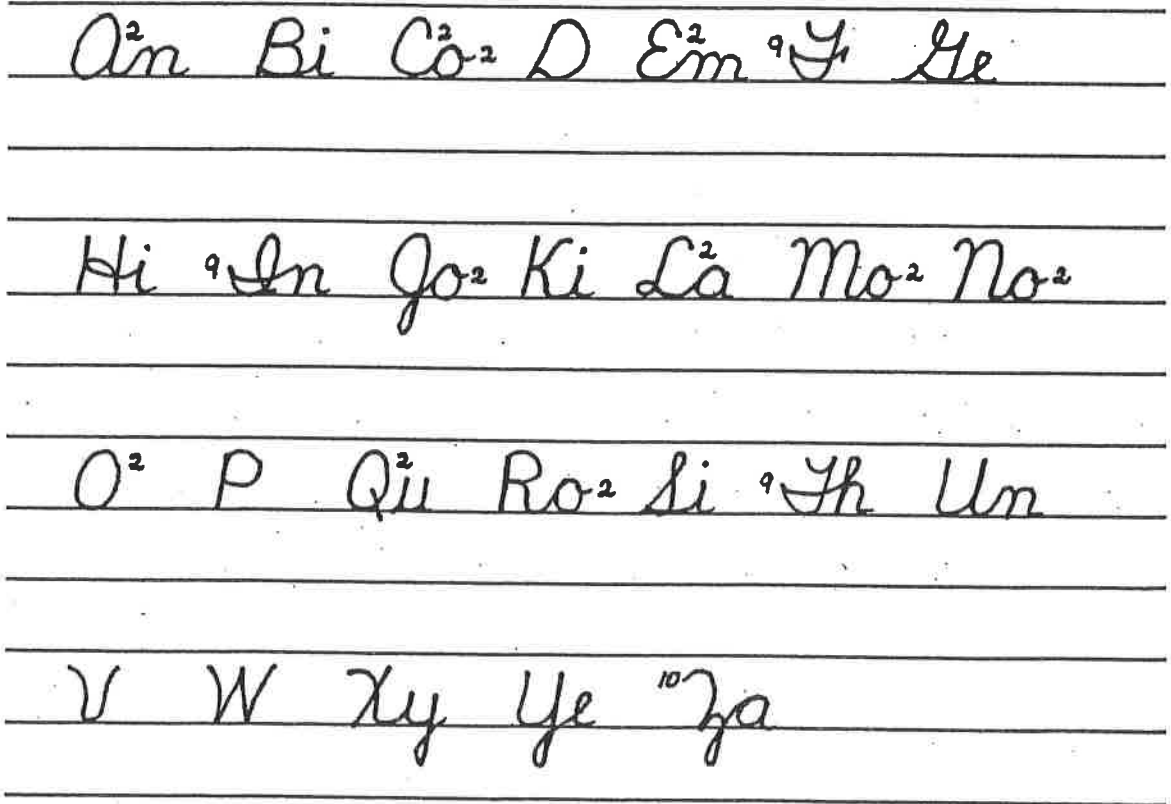 A²n Bi C²o² D E²m ⁹F Ge
Hi ⁹In Jo² Ki L²a Mo² No²
O² P Q²u Ro² Si ⁹Th Un
V W Xy Ye ¹⁰Za